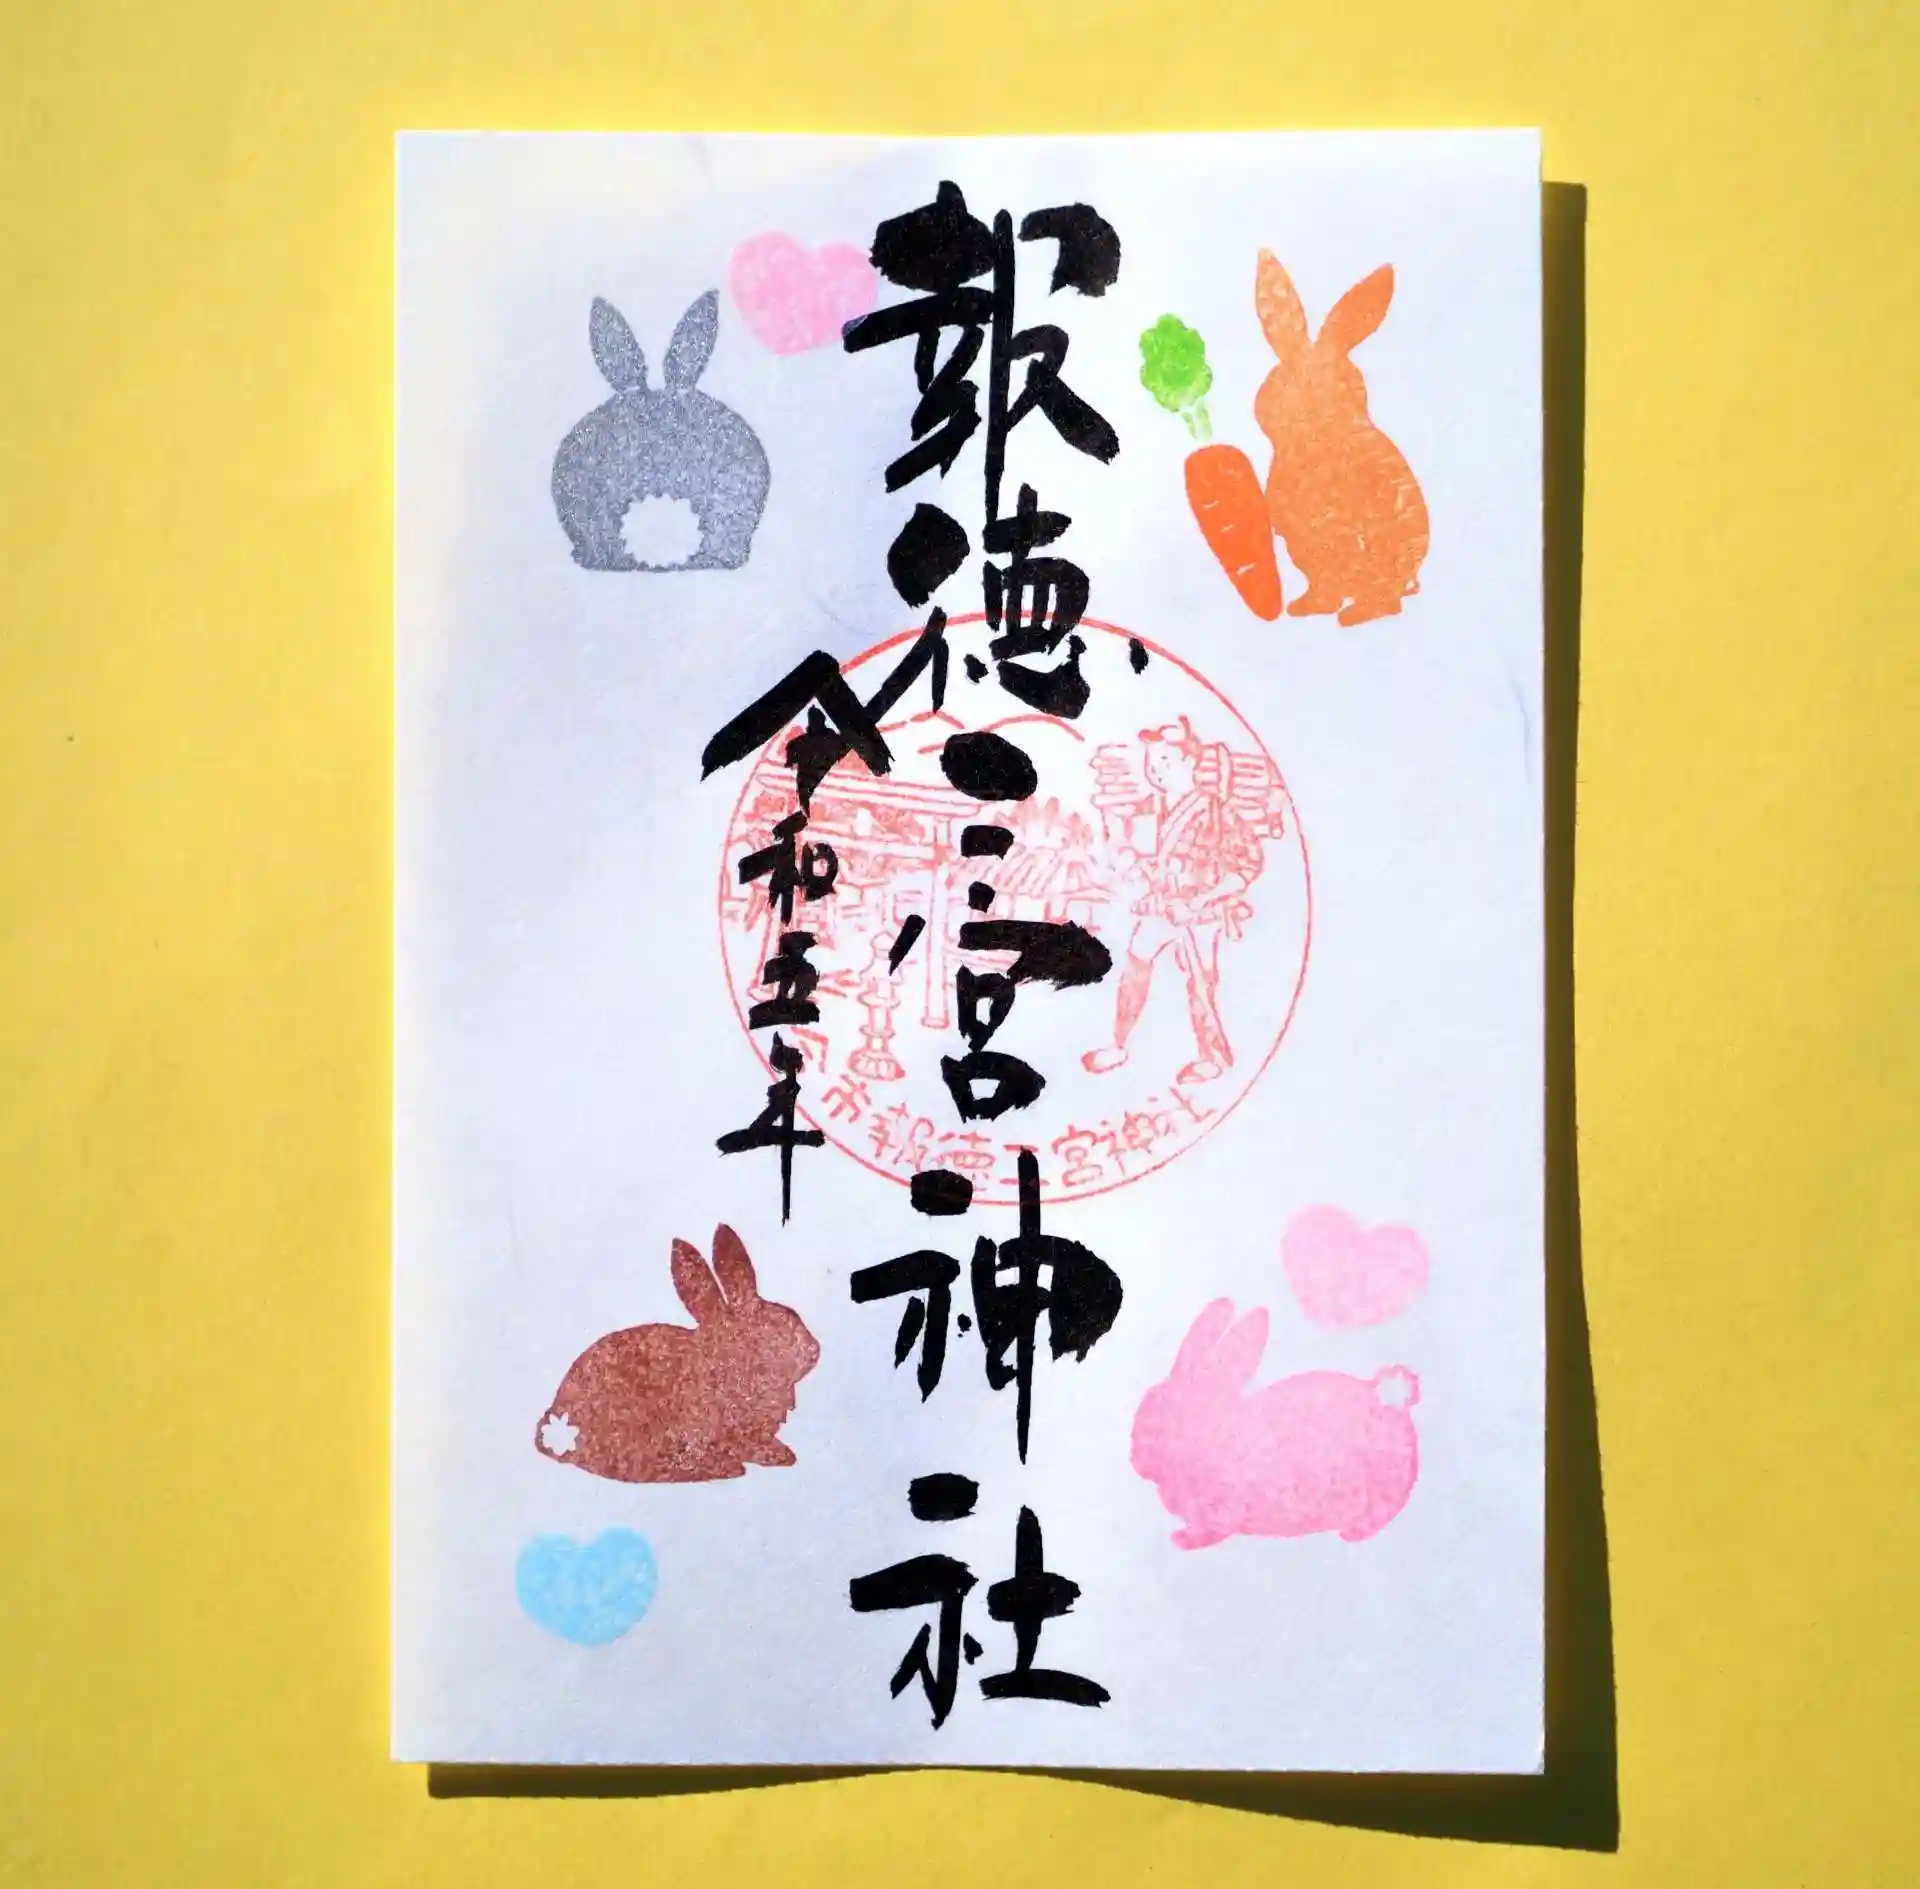 報徳二宮神社
令和五年
今市報徳二宮神社